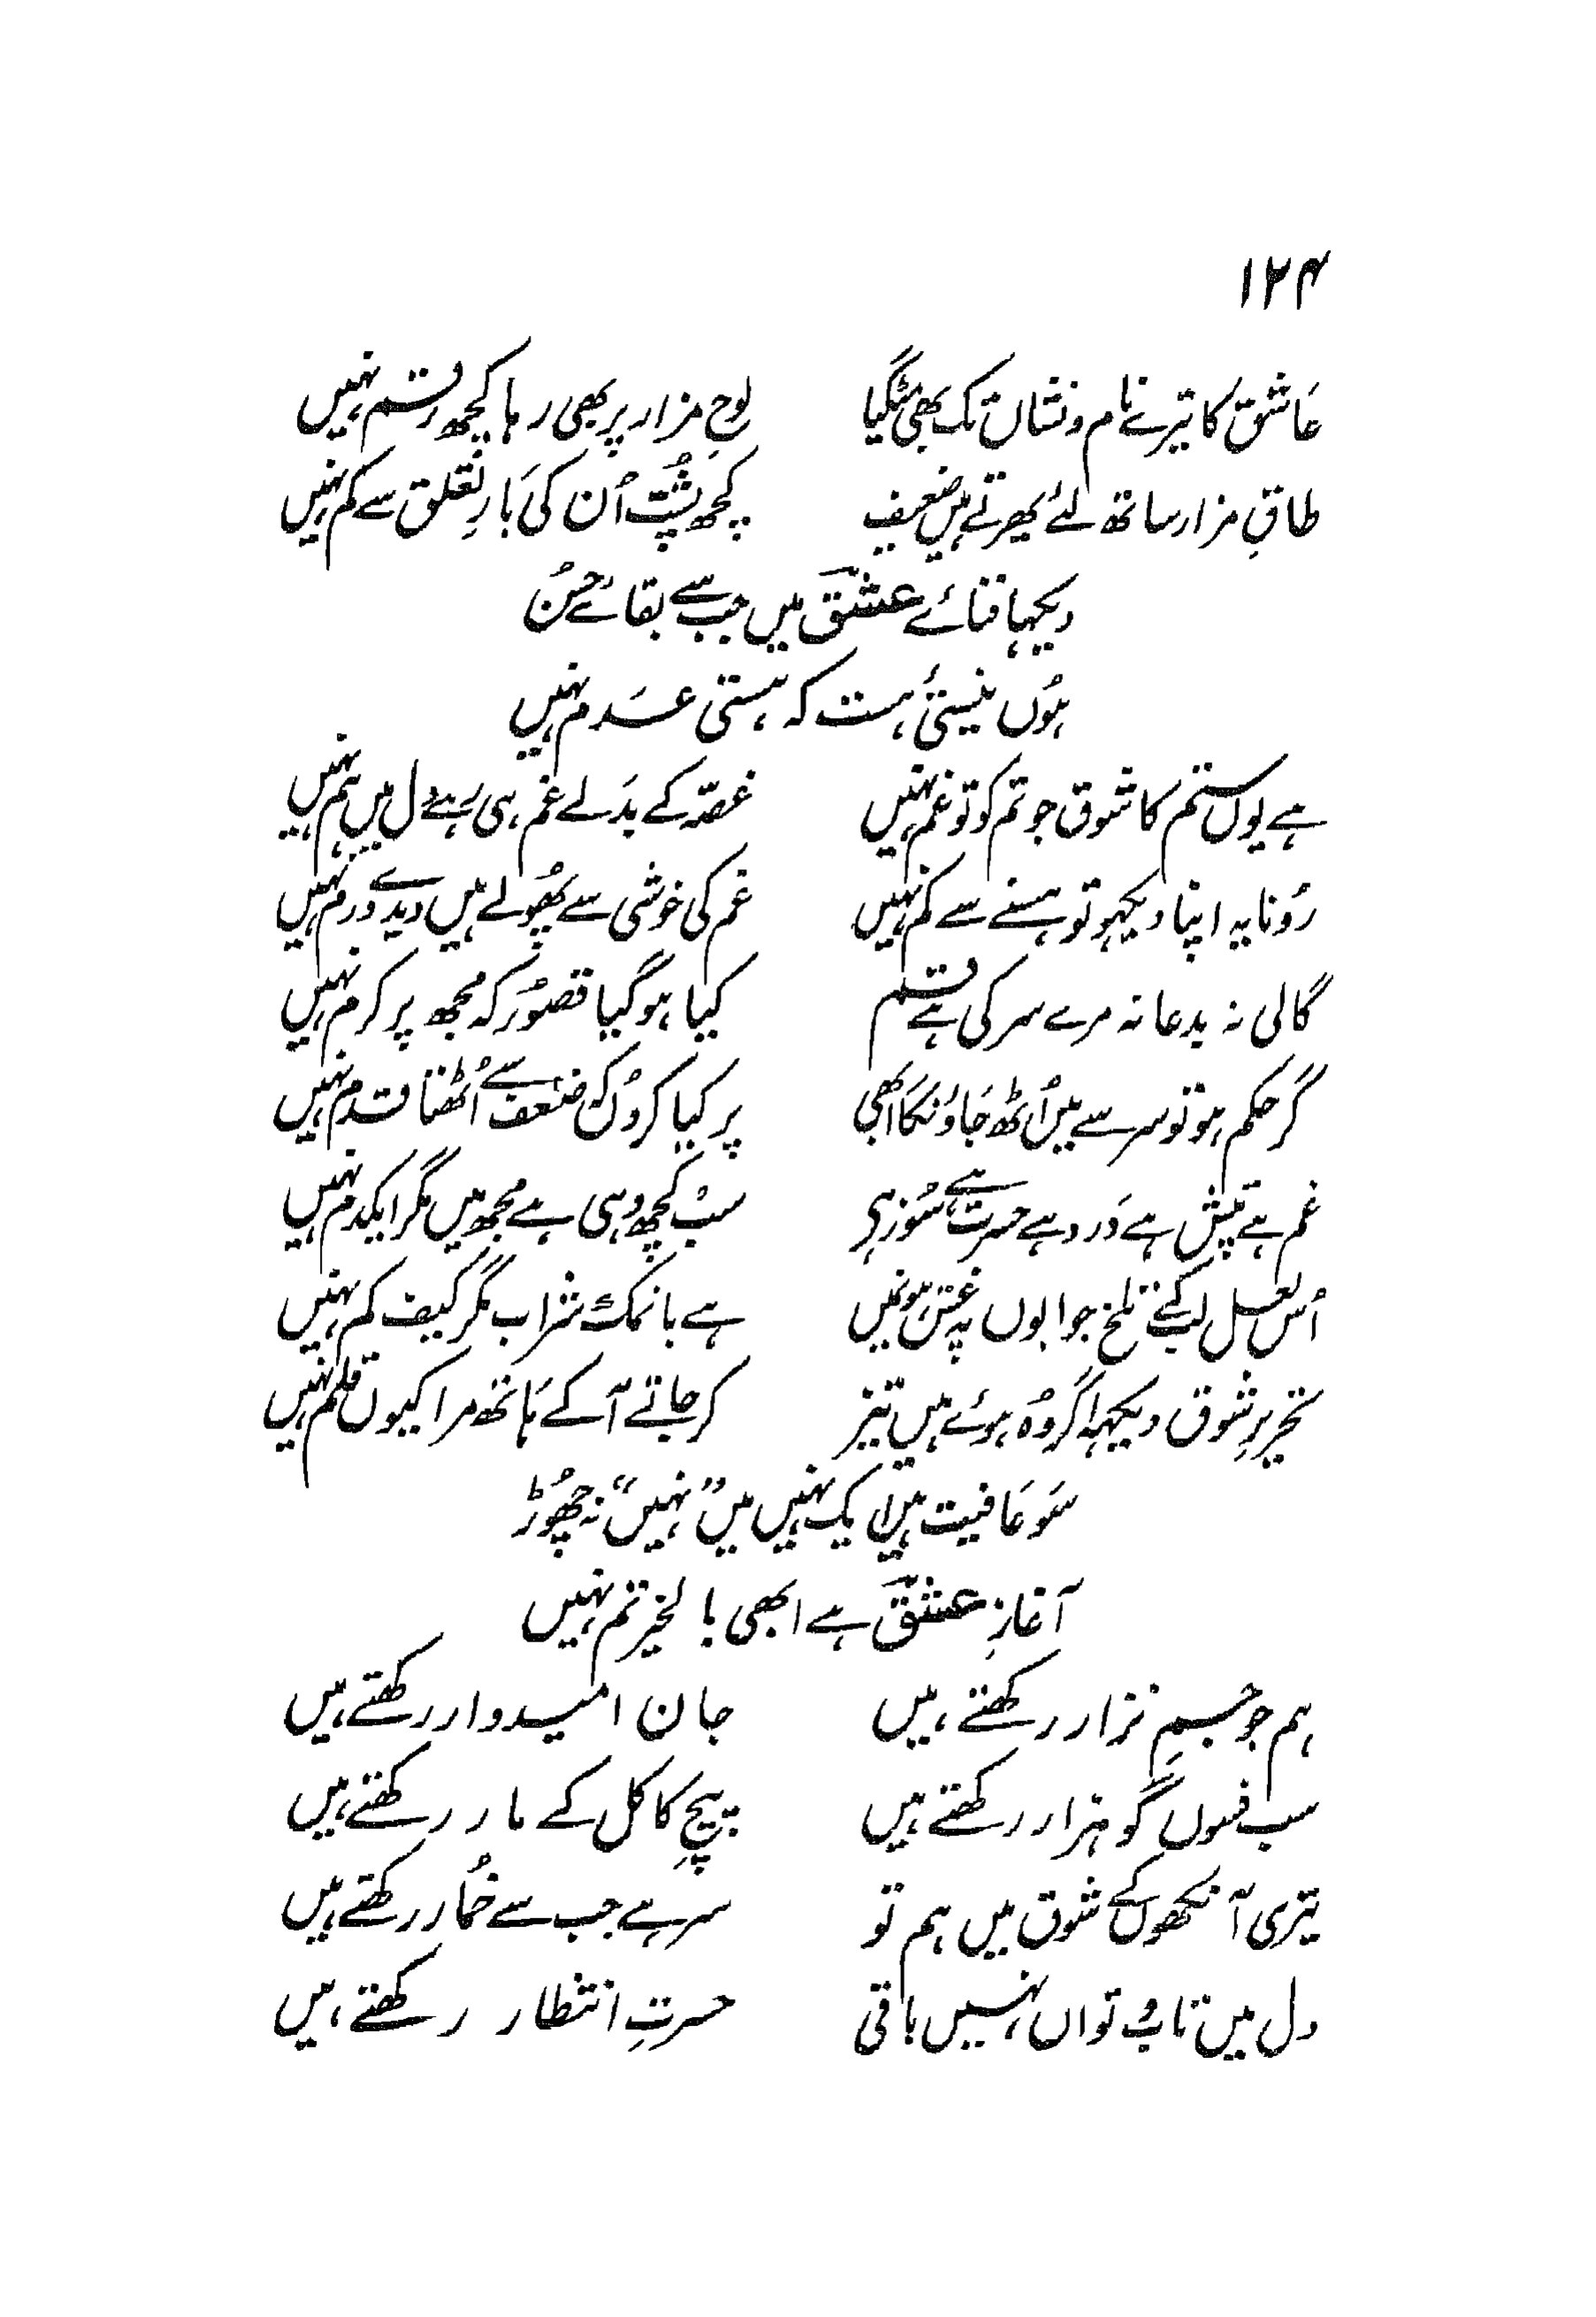 ۱۲۴
عاشق کا تیرے نام و نشاں تک بھی مٹگیا لوحِ مزار پر بھی رہا کچھ رقم نہیں
طاقِ مزار ساتھ لئے پھرتے ہیں ضعیف کچھ پُشت اُن کی بارِ تعلق سے کم نہیں
دیکہا فنائے عشقؔ میں جب سے بقائے حسنُ
ہوُں نیستیٔ ہست کہ ہستی عدم نہیں
ہے یوں ستم کا شوق جو تم کو تو غم نہیں غصّہ کے بدلے غم ہی رہے دل میں ہم نہیں
رونا یہ اپنا دیکہو تو ہنسنے سے کم نہیں غم کی خوشی سے پھُولے ہیں دیدے ورم نہیں
گالی نہ بدعا نہ مرے سر کی ہے قسم کیا ہو گیا قصوُر کہ مجھ پر کرم نہیں
گر حکم ہو تو سر سے میں اُٹھ جاؤنگا ابھی پر کیا کروُں کہ ضعف سے اُٹھتا قدم نہیں
غم ہے تپش ہے درد ہے حسرت ہے سُوز ہی سب کچھ وہی ہے مجھ میں مگر ایکدم نہیں
اُس لعل لب کے تلخ جوابوں پہ غش ہوں میں ہے با نمک شراب مگر کیف کم نہیں
تحریرِ شوق دیکہہ اگر وُہ ہوئے ہیں تیز کر جاتے آ کے ہاتھ مرا کیوں قلم نہیں
سَو عافیت ہیں ایک نہیں میں ”نہیں“ نہ چھوُڑ
آغازِ عشقؔ ہے ابھی بالخیر تم نہیں
ہم جو جسمِ نزار رکھتے ہیں جان امیدوار رکھتے ہیں
سب فسوں گو ہزار رکھتے ہیں پیچِ کاکل کے مار رکھتے ہیں
تیری آنکھوں کے شوق میں ہم تو سر ہے جب سے خُمار رکھتے ہیں
دل میں تاب و تواں نہیں باقی حسرتِ انتظار رکھتے ہیں